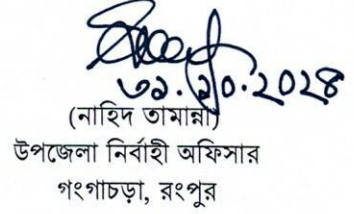 ৩১.১০.২০২৪
(নাহিদ তামান্না)
উপজেলা নির্বাহী অফিসার
গংগাচড়া, রংপুর